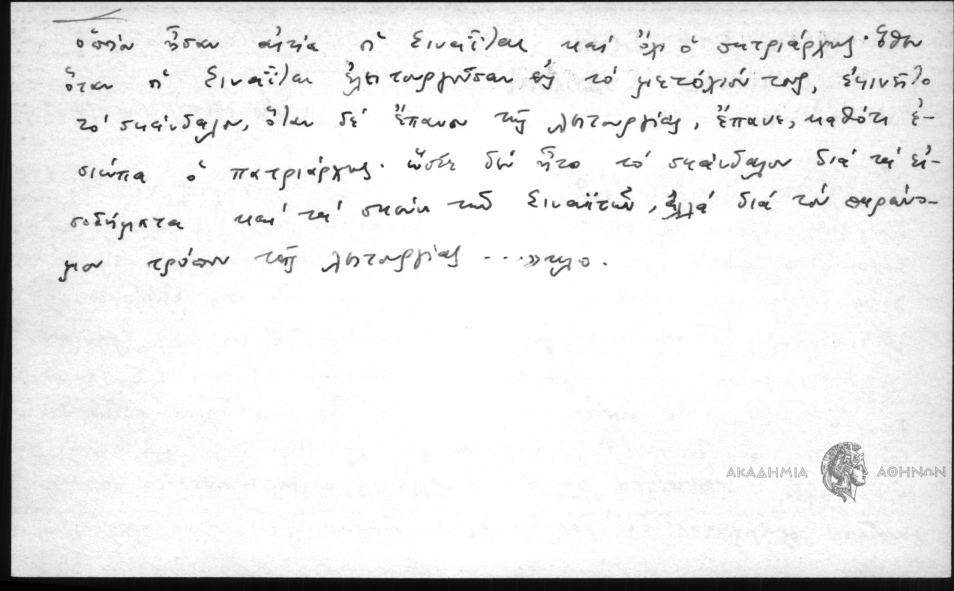 ὁποίον ἦσαν αἰτία οἱ Σιναῗται καὶ ὄχι ὁ πατριάρχης· ὅθεν
ὅταν οἱ Σιναῗται ἐλειτουργοῦσαν εἰς τὸ μετόχιόν τους, ἐκινεῖτο
τὸ σκάνδαλον, ὅταν δὲ ἔπαυον τῆς λειτουργίας, ἔπαυε, καθότι ἐ-
σιώπα ὁ πατριάρχης· ὥστε δὲν ἦτο τὸ σκάνδαλον διὰ τὰ εἰ-
σοδήματα καὶ τὰ σκεύη τῶν Σιναϊτῶν, ἀλλὰ διὰ τὸν παράνο-
μον τρόπον τῆς λειτουργίας ...» κλπ.
ΑΚΑΔΗΜΙΑ ΑΘΗΝΩΝ